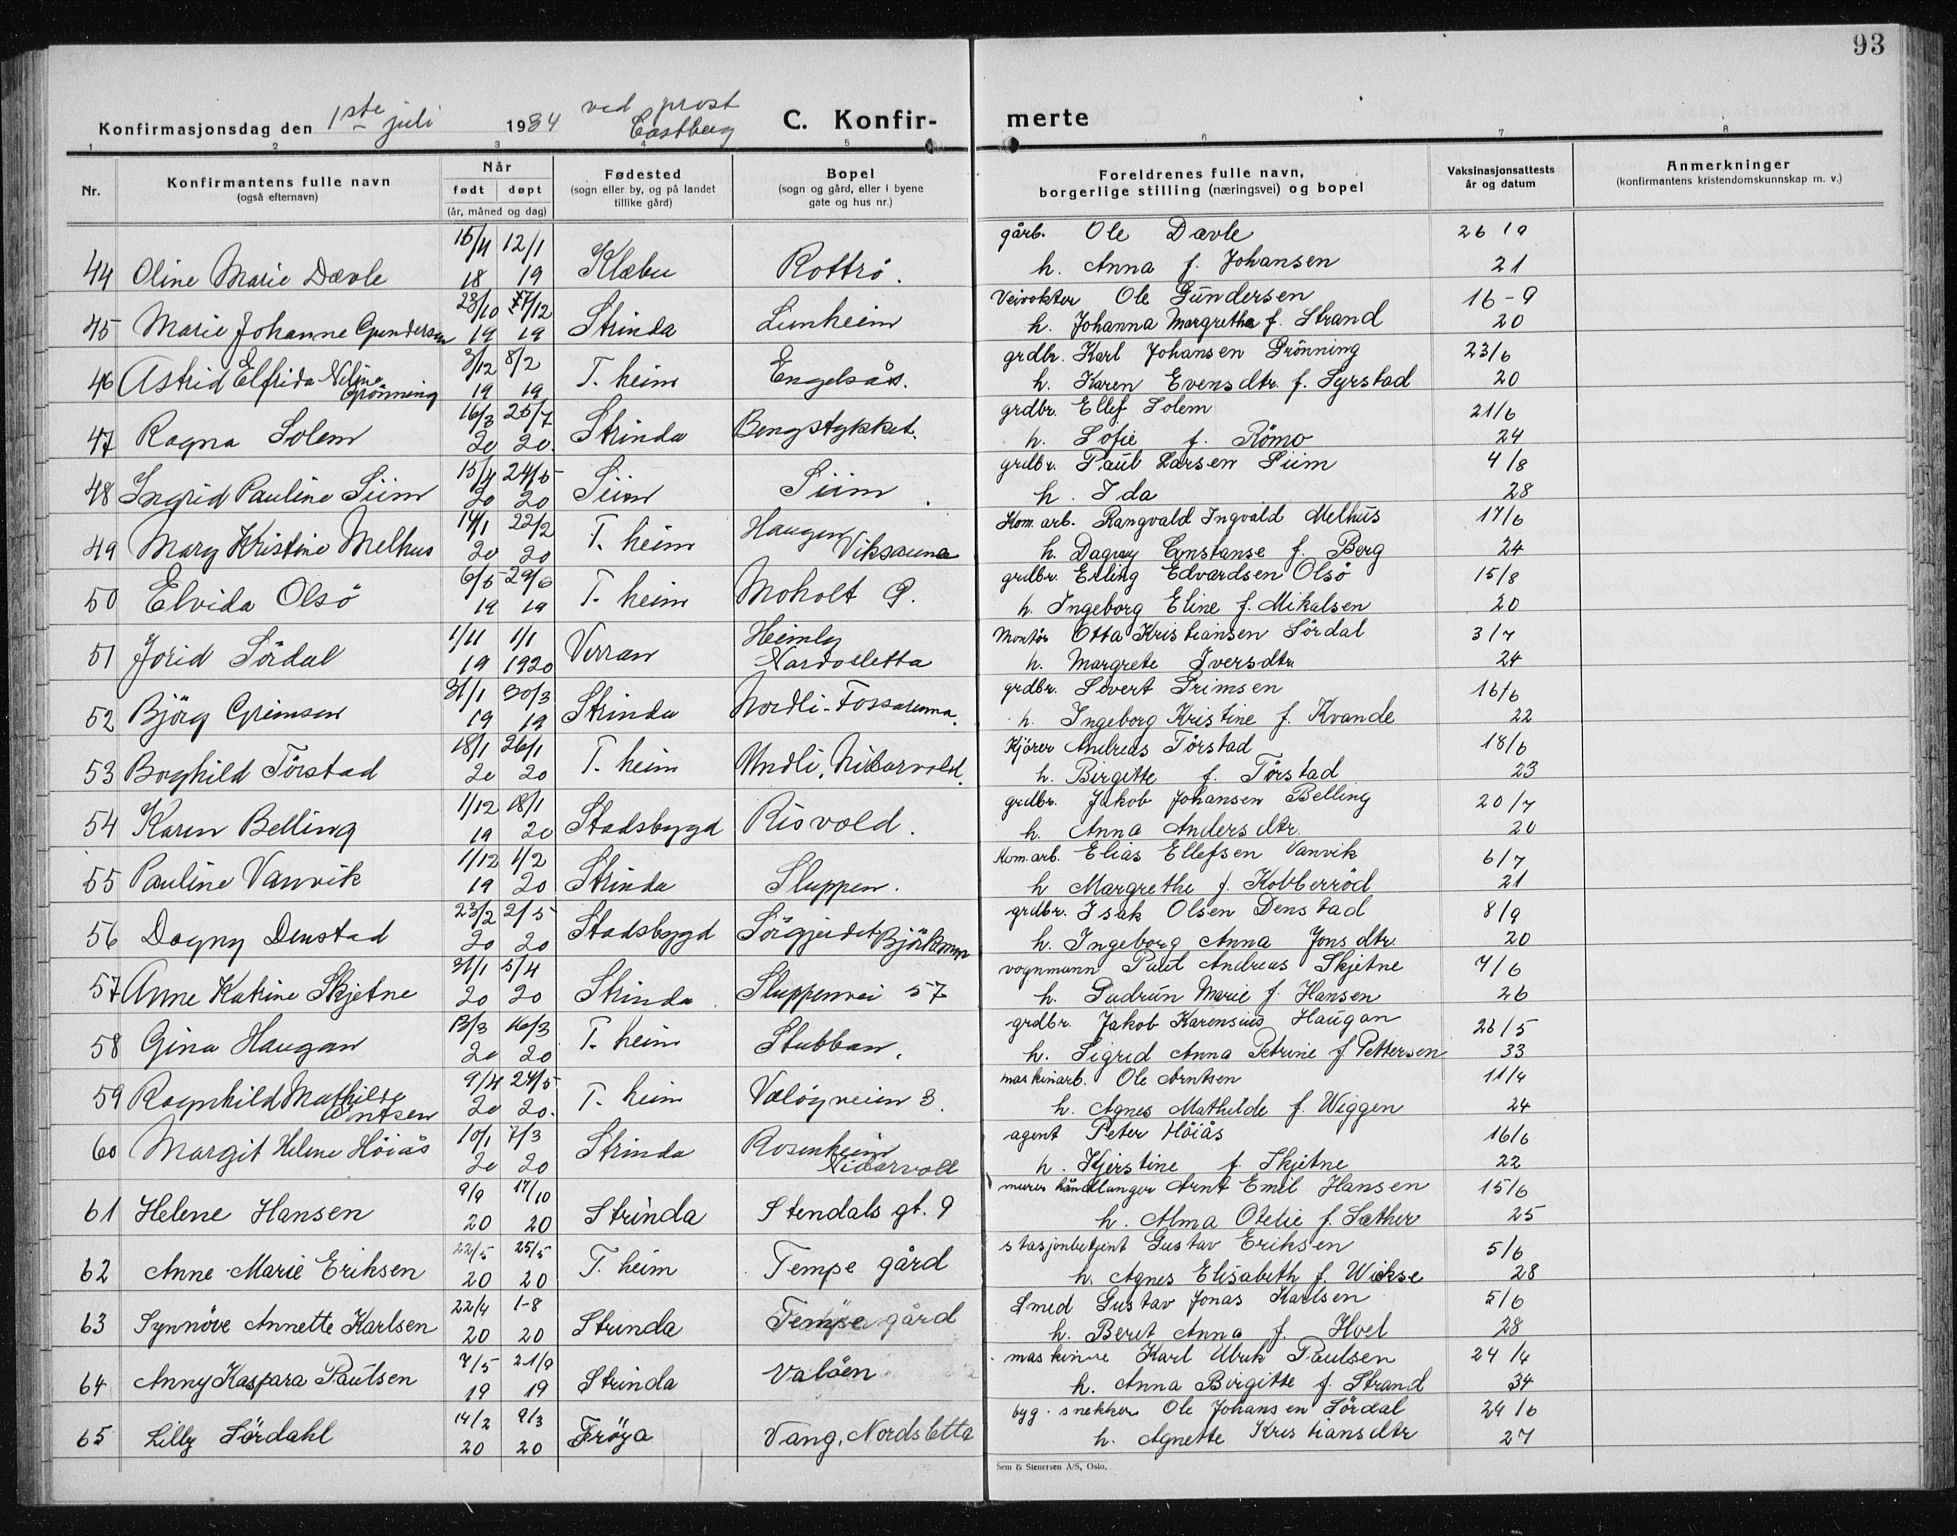 93
Konfirmasjonsdag den 1ste juli 1934 ved prost Castberg C. Konfir- merte
1 2 3 4 5 6 7 8
Nr. Konfirmantens fulle navn (også efternavn) Når født døpt (år, måned og dag) Fødested (sogn eller by, og på landet tillike gård) Bopel (sogn og gård, eller i byene gate og hus nr.) Foreldrenes fulle navn, borgerlige stilling (næringsvei) og bopel Vaksinasjonsattests år og datum Anmerkninger (konfirmantens kristendomskunnskap m. v.)
15/4 12/1 gårb. Ole Dævle 26 19
44 Oline Marie Dævle 18 19 Klæbu Rottrö. h. Anna f. Johansen 21
23/10 27/12 Veivokter Ole Gundersen 16-9
45 Marie Johanne Gundersen 19 19 Strinda Lunheim h. Johanna Margrethe f. Strand 20
3/12 8/2 grdbr. Karl Johansen Grönning 23/6
46 Astrid Elfrida Neline Grönning 19 19 T. heim Engelsås. h. Karen Evensdtr. f. Syrstad 20
16/3 25/7 grdbr. Ellef Solem 21/6
47 Ragna Solem 20 20. Strinda Bengstykket. h. Sofie f. Römo 24
15/4 24/5 grdbr. Paul Larsen Siim 4/8
48 Ingrid Pauline Siim 20 20 Siim Siim. h. Ida 28
14/1 22/2 Kom. arb. Rangvald Ingvald Melhus 17/6
49 Mary Kristine Melhus 20 20 T. heim Haugen Viksauna h. Dagny Constanse f. Berg 24
6/5 29/6 grdbr. Erling Edvardsen Olsö 15/8
50 Elvida Olsö 19 19 T. heim Moholt 9. h. Ingeborg Eline f. Mikalsen 20
1/11 1/1 Montör Otto Kristiansen Sördal 3/7
51 Jorid Sördal 19 1920 Verran Heimly Nardosletta h. Margrete Iversdtr. 24
31/1 30/3 grdbr. Sivert Grimsen 16/6
52 Björg Grimsen 19 19 Strinda Nordli-Fossauna. h. Ingeborg Kristine f. Kvande 22
18/1 26/1 Kjörer Andreas Törstad 18/6
53 Borghild Törstad 20 20 T. heim Undli, Nidarvold. h. Birgitte f. Törstad 23
1/12 18/1 grdbr. Jakob Johansen Belling 20/7
54 Karen Belling 19 20 Stadsbygd Risvold. h. Anna Andersdtr. 20
1/12 1/2 Kom. arb. Elias Ellefsen Vanvik 6/7
55 Pauline Vanvik 19 20 Strinda Sluppen. h Margrethe f. Kobberröd 21
23/2 2/5 grdbr. Isak Olsen Denstad 8/9
56 Dagny Denstad 20 20 Stadsbygd Sörgjeidet h. Ingeborg Anna Jonsdtr. 20
31/1 5/4 vognmann Paul Andreas Skjetne 7/6
57 Anne Katrine Skjetne 20 20 Strinda. Sluppenvei 57 h. Gudrun Marie f. Hansen 26
13/3 16/3 grdbr. Jakob Karensius Haugan 26/5
58 Gina Haugan 20 20 T. heim Stubban. h. Sigrid Anna Petrine f Pettersen 33
9/4 24/5 maskinarb. Ole Arntsen 11/4
59 Ragnhild Mathilde Arntsen 20 20. T. heim Valöyveien 3. h. Agnes Mathilde f. Wiggen 24
10/1 7/3 agent Peter Höiås 16/6
60 Margit Helene Höiås 20 20 Strinda Rosenheim Nidarvoll h. Kjerstine f. Skjetne 22
9/9 17/10 murer håndlanger Arnt Emil Hansen 15/6
61 Helene Hansen 20 20 Strinda Stendals gt. 9 h. Alma Otelie f. Sæther 25
22/5 25/5 stasjonbetjent Gustav Eriksen 5/6
62 Anne-Marie Eriksen 20 20 T. heim Tempe gård h. Agnes Elisabeth f. Wickse 28
22/4 1-8 Smed Gustav Jonas Karlsen 5/6
63 Synnöve Annette Karlsen 20 20 Strinda Tempe gård h. Beret Anna f. Hoel 28
7/5 21/9 maskinne Karl Ulrik Paulsen 24/4
64 Anny Kaspara Paulsen 19 19 Strinda Valöen h. Anna Birgitte f. Strand 34
14/2 9/3 byg. snekker Ole Johansen Sördal 24/6
65 Lilly Sördahl 20 20 Fröya Vang, Nordsletta h. Agnette Kristiansdtr 27
Sem & Stenersen A/S, Oslo.